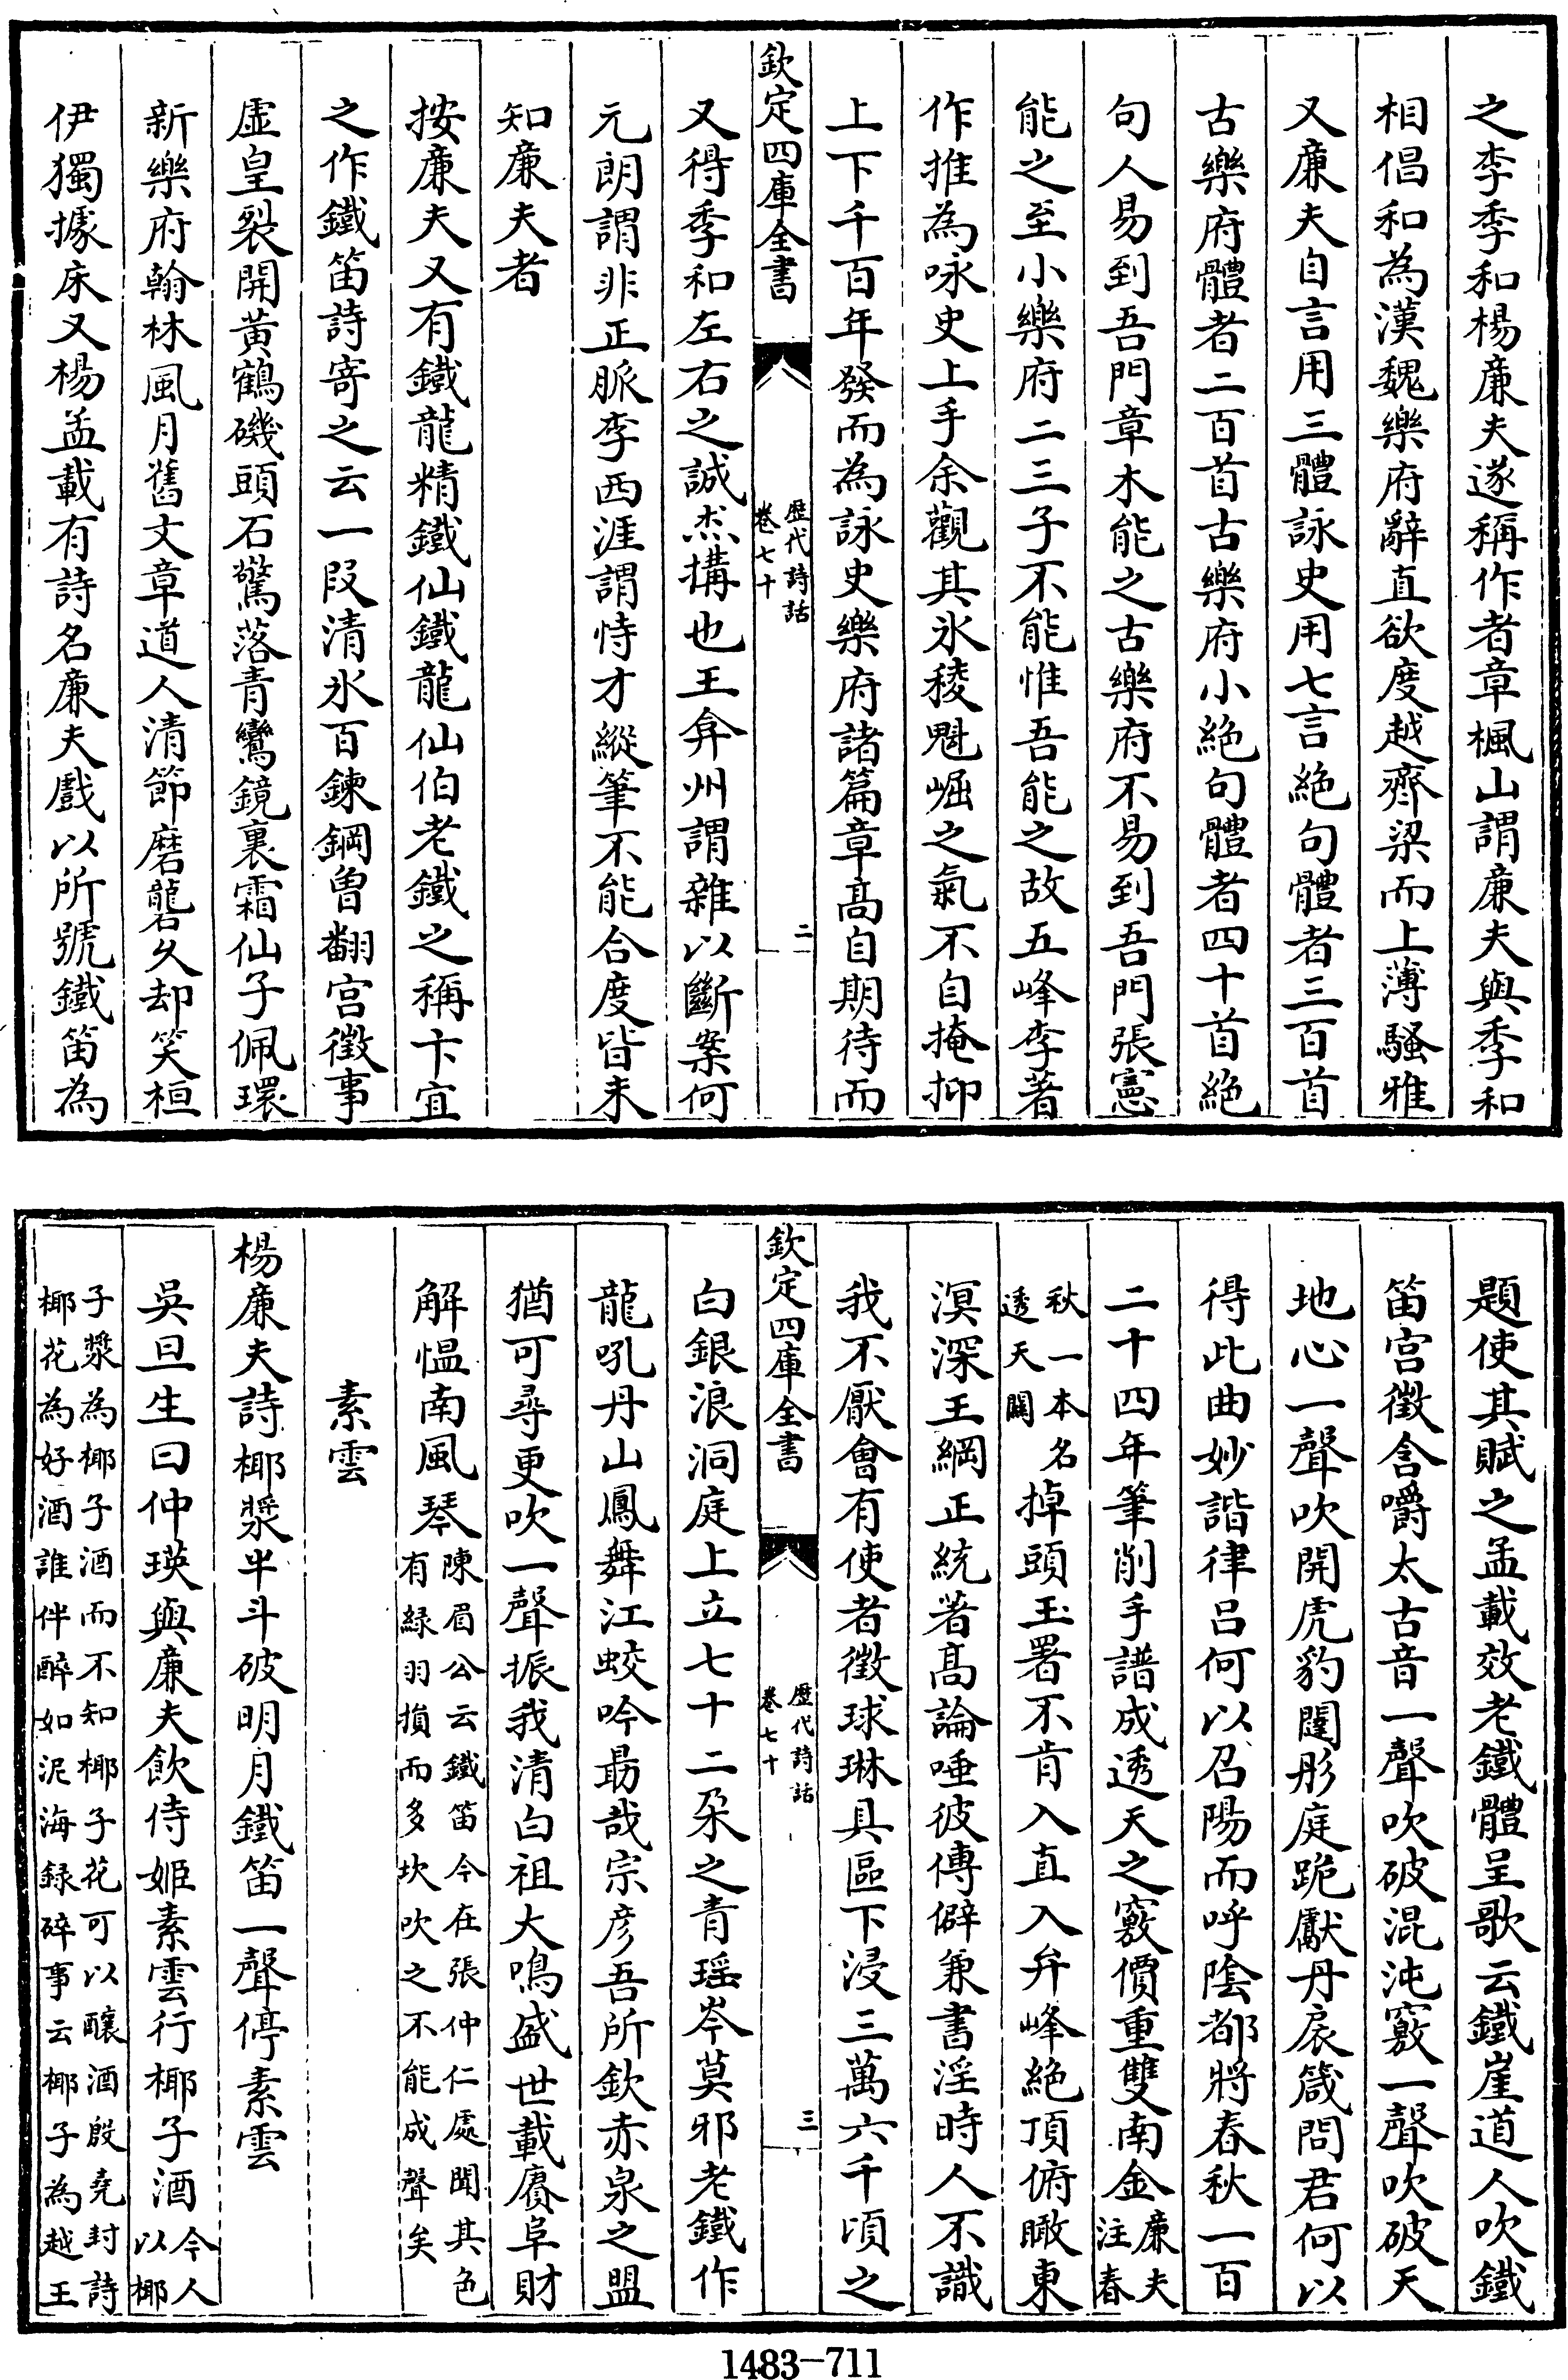 之李季和楊亷夫遂稱作者章楓山謂亷夫與季和
相倡和為漢魏樂府辭直欲度越齊梁而上薄騷雅
又亷夫自言用三體詠史用七言絶句體者三百首
古樂府體者二百首古樂府小絶句體者四十首絶
句人易到吾門章木能之古樂府不易到吾門張憲
能之至小樂府二三子不能惟吾能之故五峰李著
作推為咏史上手余觀其氷稜魁崛之氣不自掩抑
上下千百年發而為詠史樂府諸篇章髙自期待而
欽定四庫全書
歴代詩話
卷七十
二
又得季和左右之誠杰搆也王弇州謂雜以斷案何
元朗謂非正脈李西涯謂恃才縱筆不能合度皆未
知亷夫者
按亷夫又有鐵龍精鐵仙鐵龍仙伯老鐵之稱卞宜
之作鐵笛詩寄之云一段清氷百鍊鋼曽翻宫徴事
虚皇裂開黄鶴磯頭石驚落青鸞鏡裏霜仙子佩環
新樂府翰林風月舊文章道人清節磨礲久却笑桓
伊獨據床又楊孟載有詩名亷夫戲以所號鐵笛為
題使其賦之孟載效老鐵體呈歌云鐵崖道人吹鐵
笛宫徴含嚼太古音一聲吹破混沌竅一聲吹破天
地心一聲吹開虎豹闥彤庭跪獻丹扆箴問君何以
得此曲妙諧律吕何以召陽而呼陰都將春秋一百
二十四年筆削手譜成透天之竅價重雙南金亷夫注春
秋一本名透天關掉頭玉署不肯入直入弁峰絶頂俯瞰東
溟深王綱正統著髙論唾彼傳僻兼書淫時人不識
我不厭會有使者徴球琳具區下浸三萬六千頃之
欽定四庫全書
歴代詩話
卷七十
三
白銀浪洞庭上立七十二朶之青瑶岑莫邪老鐵作
龍吼丹山鳳舞江蛟吟勗哉宗彦吾所欽赤泉之盟
猶可尋更吹一聲振我清白祖大鳴盛世載賡阜財
解愠南風琴陳眉公云鐵笛今在張仲仁處聞其色有緑羽損而多坎吹之不能成聲矣
素雲
楊亷夫詩椰漿半斗破明月鐵笛一聲停素雲
吳旦生曰仲瑛與亷夫飲侍姬素雲行椰子酒今人以椰
子漿為椰子酒而不知椰子花可以釀酒殷堯封詩
椰花為好酒誰伴醉如泥海録碎事云椰子為越王
1483-711